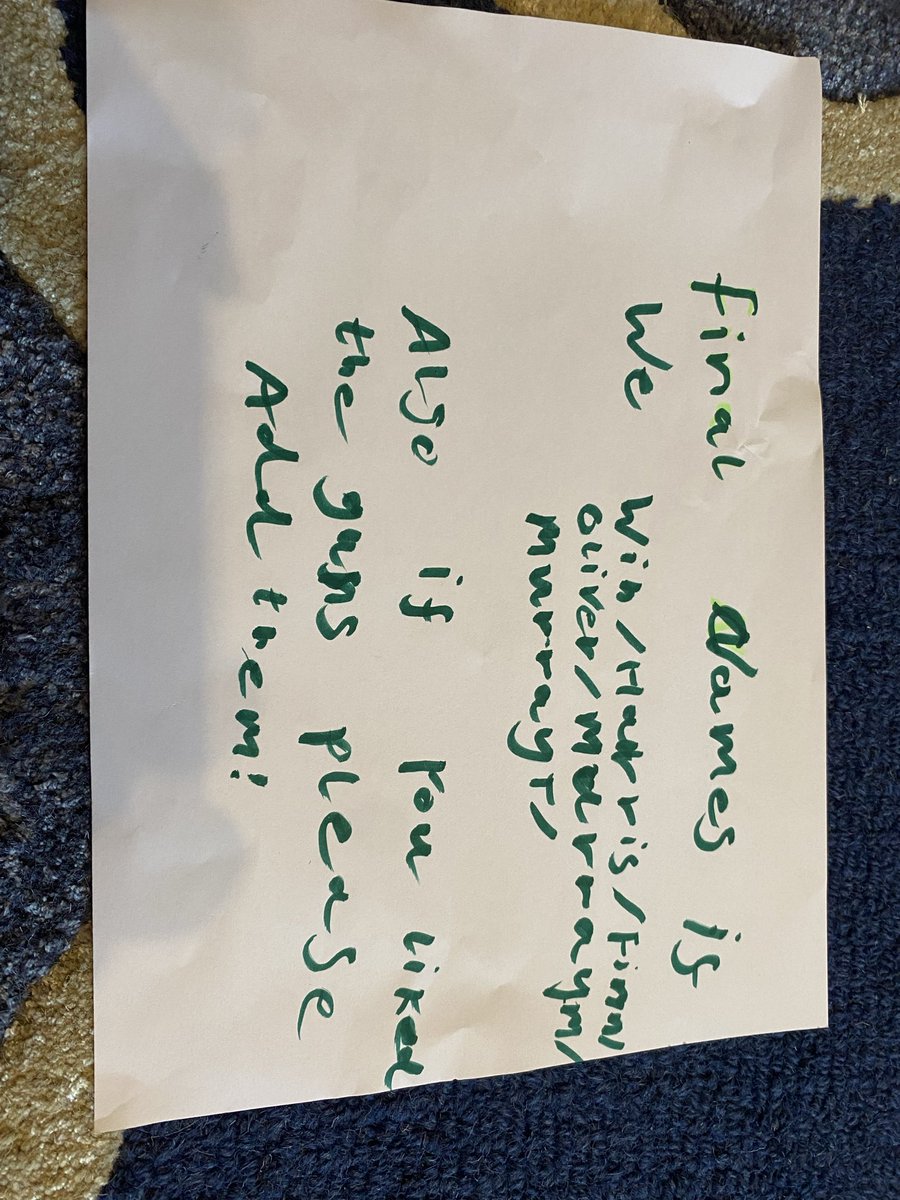 Final Names is
We Win/Harris/Finn/
oliver/Murraym/
MurrayT/
Also if you liked
the guns please
Add them!